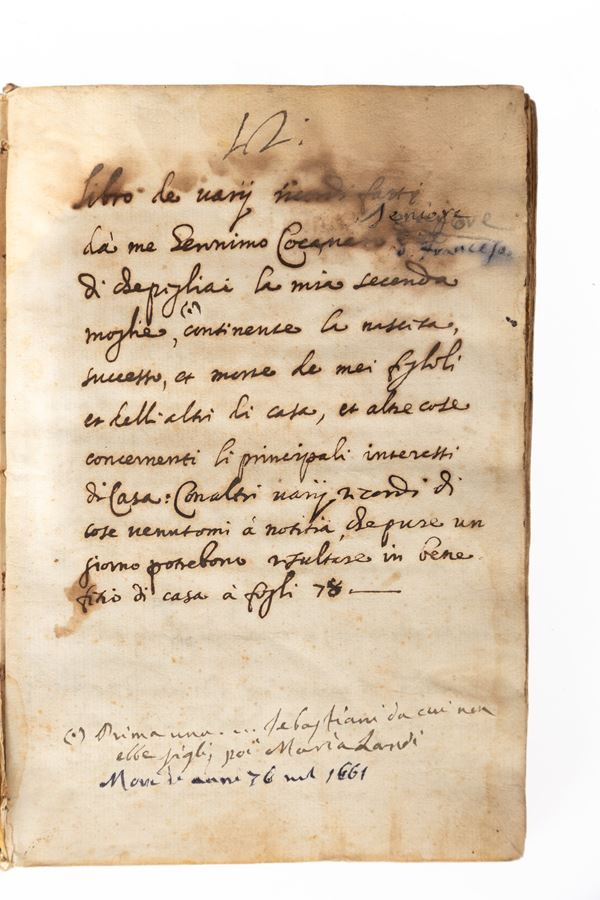 42:
Libro de varij ricordi fatti
Seniore
da me Gennimo Cocane
q. Francesco
di che pigliai la mia seconda
moglie (•), continente la nascita,
successo, et morte de mei figlioli
et delli altri di casa, et altre cose
concernenti li principali interessi
di Casa: Con altri varij ricordi di
cose venutomi à notitia, che pure un
giorno potrebono risultare in bene
fitio di casa à figli
(•) Prima una .... Sebastiani da cui non
ebbe figli, poi Maria Landi
Morì di anni 76 nel 1661